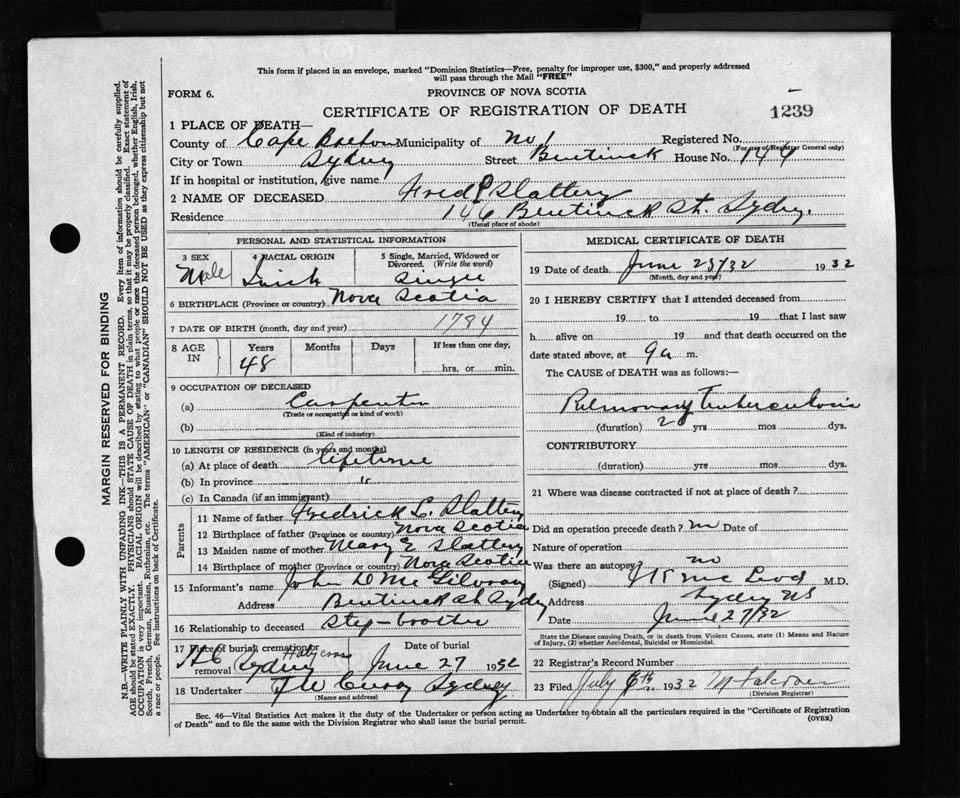 This form if placed in an envelope, marked "Dominion Statistics—Free, penalty for improper use, $300," and properly addressed
will pass through the Mail "FREE"
FORM 6.
PROVINCE OF NOVA SCOTIA
CERTIFICATE OF REGISTRATION OF DEATH
1239
1 PLACE OF DEATH—
County of Cape Breton Municipality of No 1 Registered No.
(For use of Registrar General only)
City or Town Sydney Street Bentinck House No. 144
If in hospital or institution, give name
2 NAME OF DECEASED Fred P Slattery
Residence 146 Bentinck St. Sydney.
(Usual place of abode)
PERSONAL AND STATISTICAL INFORMATION
3 SEX Male
4 RACIAL ORIGIN Irish
5 Single, Married, Widowed or Divorced. (Write the word) Single
6 BIRTHPLACE (Province or country) Nova Scotia
7 DATE OF BIRTH (month, day and year) 1784
8 AGE IN Years Months Days If less than one day,
48 hrs. or min.
9 OCCUPATION OF DECEASED
(a) Carpenter
(Trade or occupation or kind of work)
(b)
(Kind of industry)
10 LENGTH OF RESIDENCE (in years and months)
(a) At place of death lifetime
(b) In province "
(c) In Canada (if an immigrant)
Parents
11 Name of father Fredrick L. Slattery
12 Birthplace of father (Province or country) Nova Scotia
13 Maiden name of mother Mary E Slattery
14 Birthplace of mother (Province or country) Nova Scotia
15 Informant's name John D McGilvray
Address Bentinck St Sydney
16 Relationship to deceased Step-brother
17 Place of burial, cremation or removal Date of burial
Sydney Holy Cross June 27 1932
18 Undertaker Sydney.
(Name and address)
MEDICAL CERTIFICATE OF DEATH
19 Date of death June 25/32 1932
(Month, day and year)
20 I HEREBY CERTIFY that I attended deceased from
19 to 19 that I last saw
h alive on 19 and that death occurred on
date stated above, at 9 a m.
The CAUSE of DEATH was as follows:—
Pulmonary Tuberculosis
(duration) 2 yrs mos dys.
CONTRIBUTORY
(duration) yrs mos dys.
21 Where was disease contracted if not at place of death?
Did an operation precede death? no Date of
Nature of operation
Was there an autopsy? no
(Signed) McLeod M.D.
Address Sydney NS
Date June 27/32
State the Disease causing Death, or in death from Violent Causes, state (1) Means and Nature
of Injury, (2) whether Accidental, Suicidal or Homicidal.
22 Registrar's Record Number
23 Filed July 6th 1932
(Division Registrar)
Sec. 46—Vital Statistics Act makes it the duty of the Undertaker or person acting as Undertaker to obtain all the particulars required in the "Certificate of Registration
of Death" and to file the same with the Division Registrar who shall issue the burial permit.
(OVER)
MARGIN RESERVED FOR BINDING
N.B.—WRITE PLAINLY WITH UNFADING INK—THIS IS A PERMANENT RECORD. Every item of information should be carefully supplied.
AGE should be stated EXACTLY. PHYSICIANS should STATE CAUSE OF DEATH in plain terms, so that it may be properly classified. Exact statement of
OCCUPATION is very important. RACIAL ORIGIN will be described by stating to what people or race the deceased person belonged, whether English, Irish,
Scotch, French, German, Russian, Ruthenian, etc. The terms "AMERICAN" or "CANADIAN" SHOULD NOT BE USED as they express citizenship but not
a race or people. See instructions on back of Certificate.